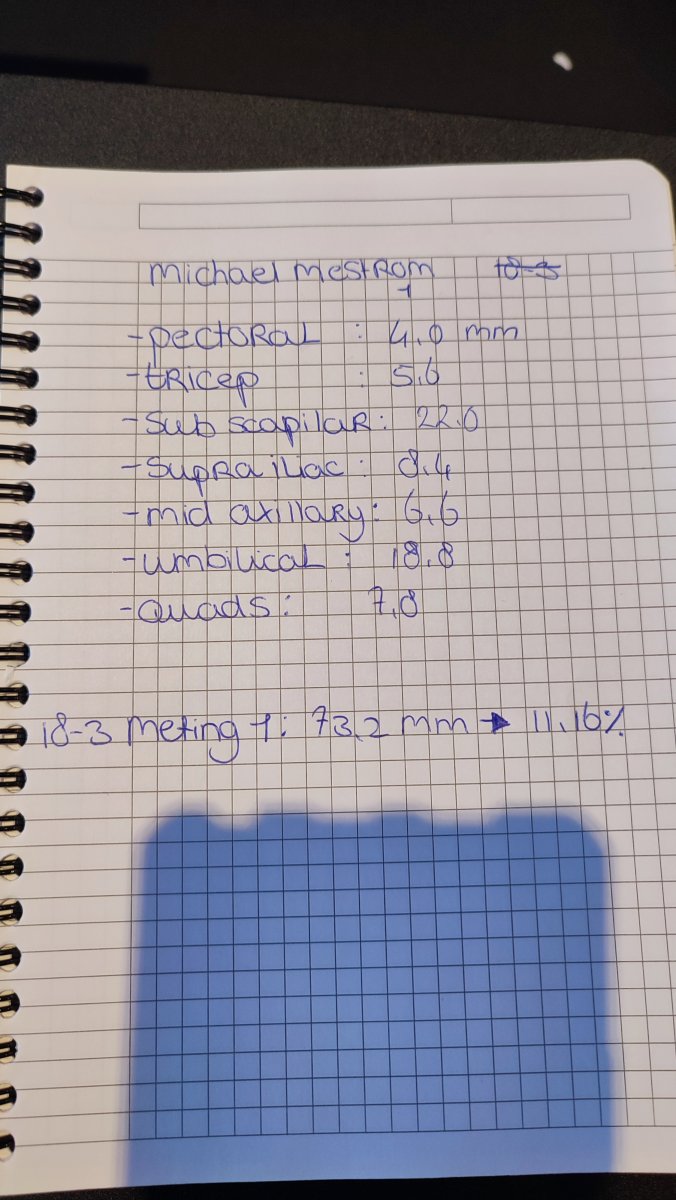 Michael Mestrom 18-3
1
- pectoral : 4.0 mm
- tricep : 5.6
- sub scapilar : 22.0
- suprailiac : 8.4
- mid axillary : 6.6
- umbilical : 18.8
- quads : 7.8
18-3 Meting 1: 73.2 mm → 11.16%